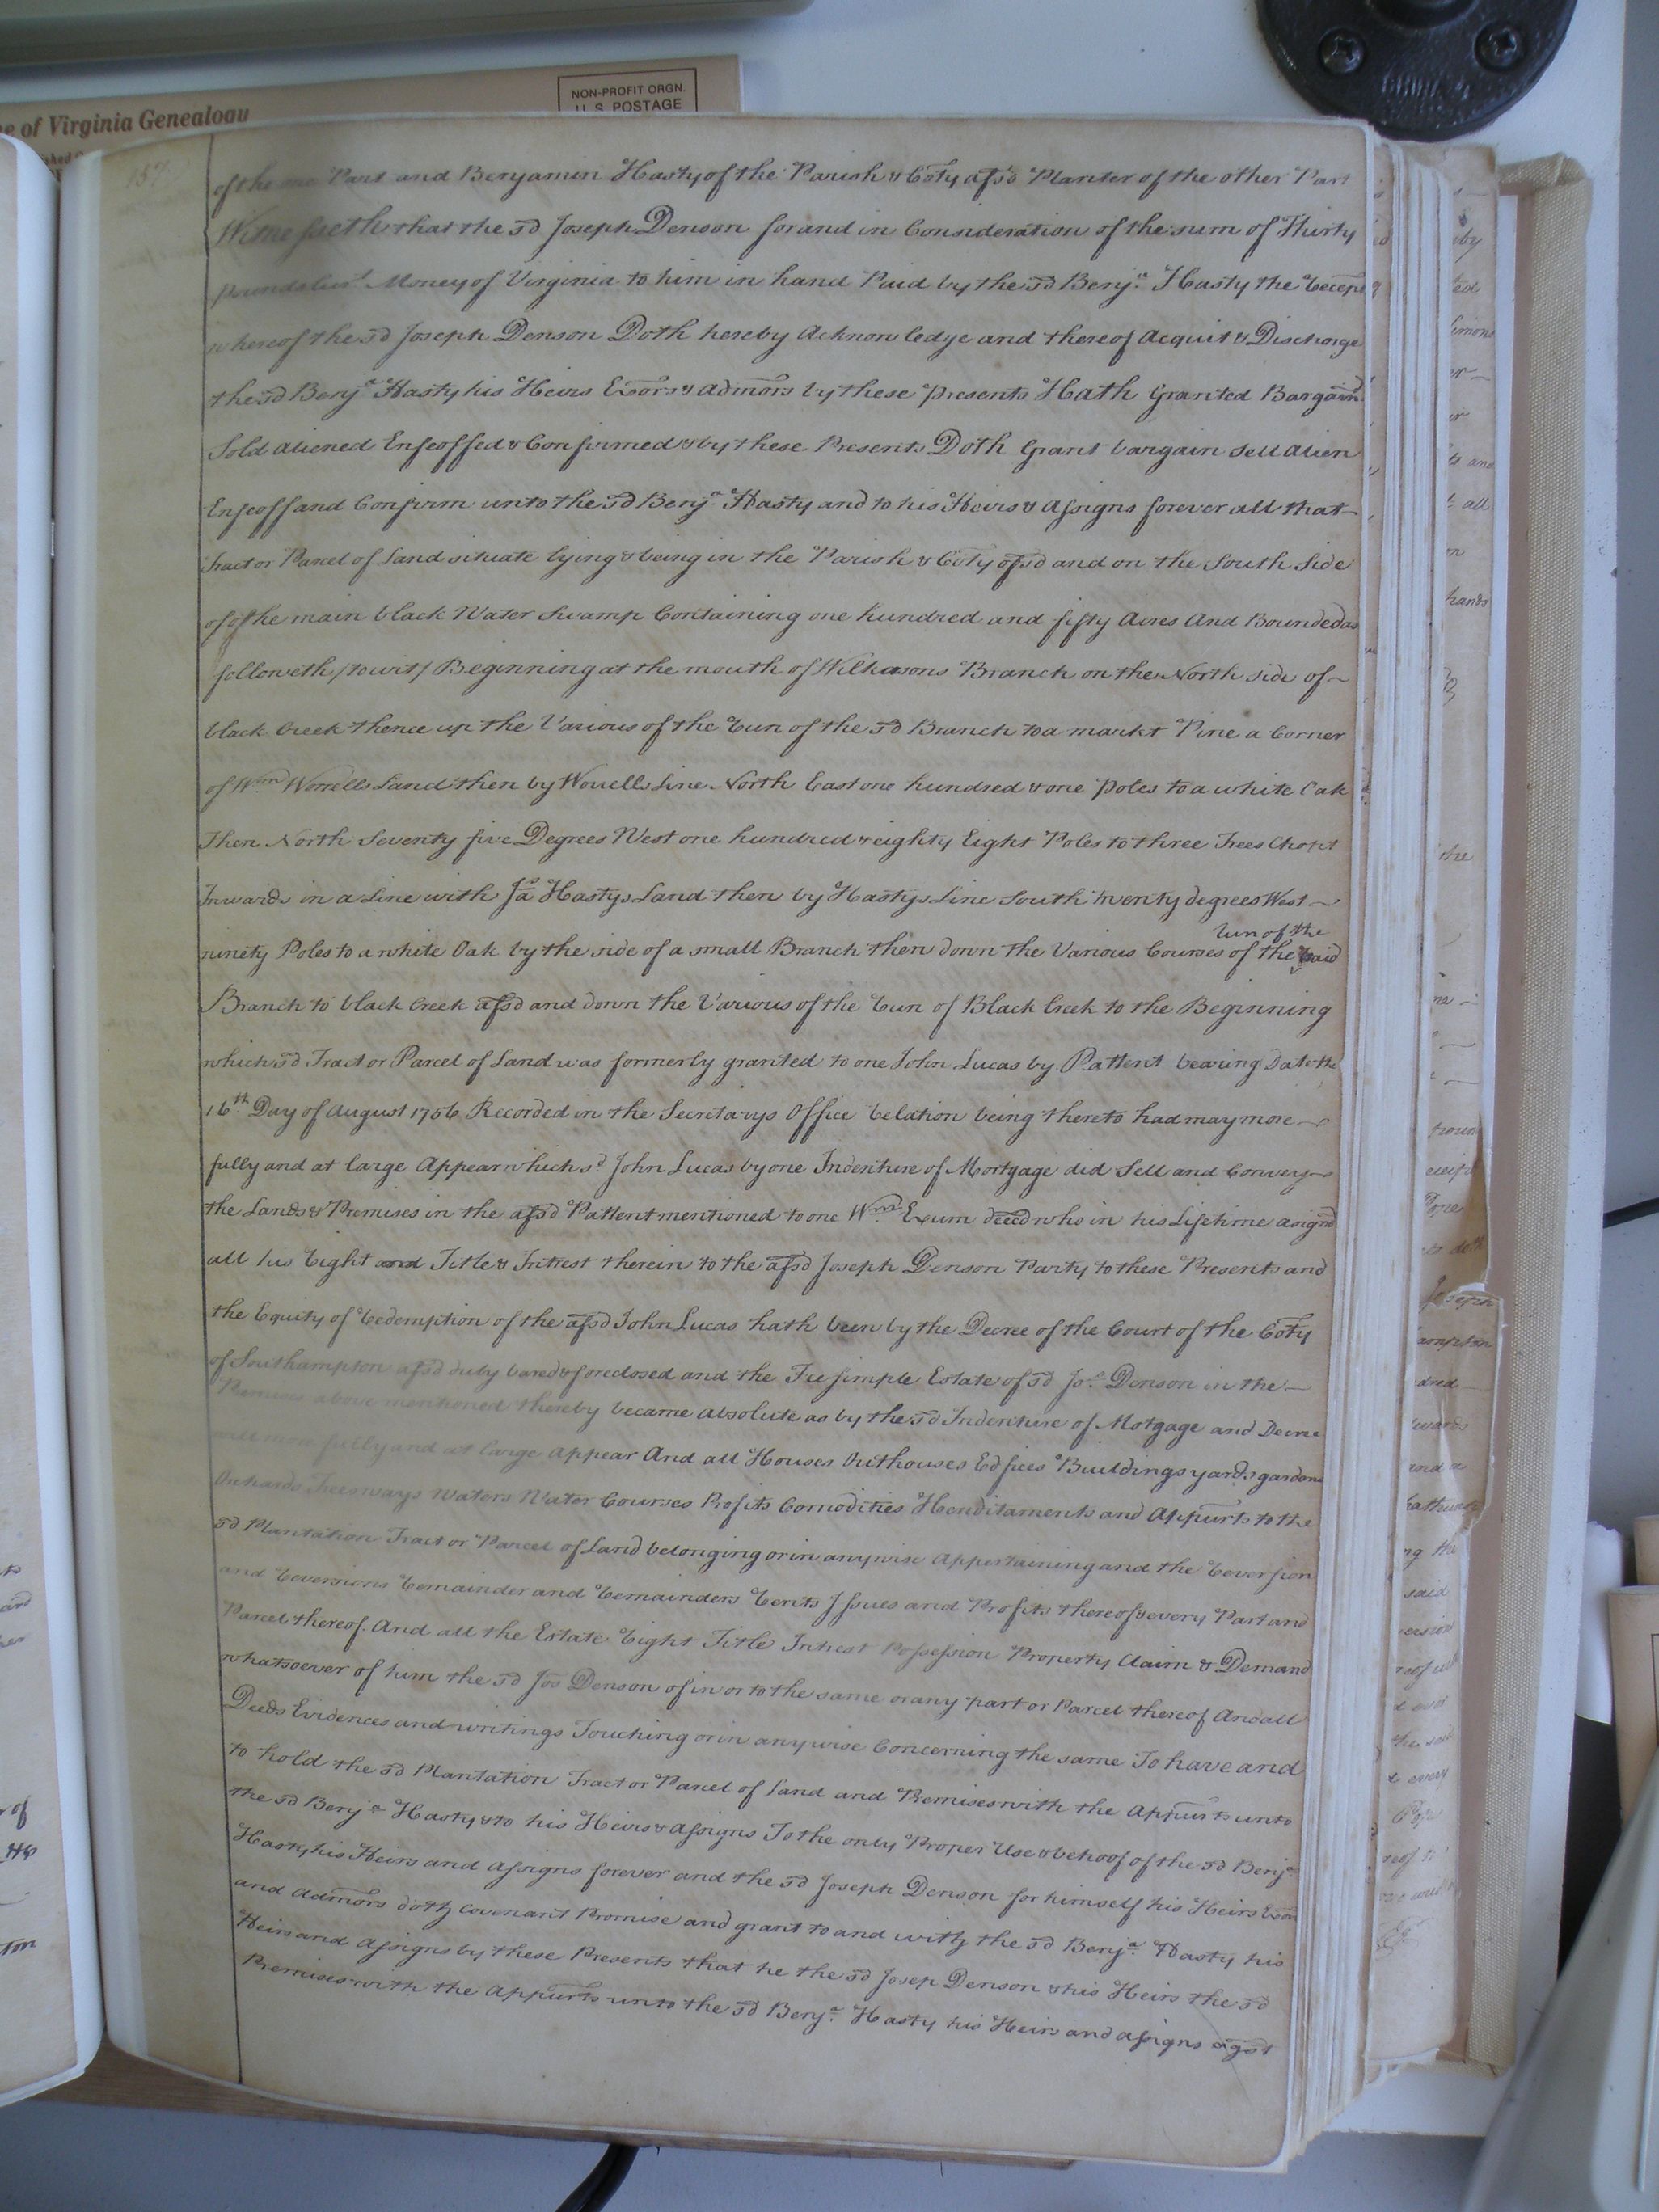 e of Virginia Genealogy
NON-PROFIT ORGN.
U. S. POSTAGE
157
of the one Part and Benjamin Hasty of the Parish & Coty afsd Planter of the other Part
Witnesseth that the sd Joseph Denson for and in Consideration of the sum of Thirty
pounds Curt Money of Virginia to him in hand Paid by the sd Benja Hasty the Receipt
whereof the sd Joseph Denson Doth hereby Acknowledge and thereof Acquit & Discharge
the sd Benja Hasty his Heirs Exors & Admors by these Presents Hath Granted Bargaind
Sold aliened Enfeoffed & Confirmed & by these Presents Doth Grant bargain sell alien
Enfeoff and Confirm unto the sd Benja Hasty and to his Heirs & Assigns forever all that
Tract or Parcel of Land situate lying & being in the Parish & Coty afsd and on the South Side
of of the main black Water Swamp Containing one hundred and fifty Acres And Bounded as
followeth /towit/ Beginning at the mouth of Wilkasons Branch on the North side of
black Creek thence up the Various of the Run of the sd Branch to a markt Pine a Corner
of Wm Worrells Land then by Worrells Line North East one hundred & one Poles to a white Oak
Then North Seventy five Degrees West one hundred & eighty Eight Poles to three Trees Chopt
Inwards in a Line with Jas Hastys Land then by Hastys Line South twenty degrees West
ninety Poles to a white Oak by the side of a small Branch then down the Various Courses of the Run of the said
Branch to black Creek afsd and down the Various of the Run of Black Creek to the Beginning
which sd Tract or Parcel of Land was formerly granted to one John Lucas by Pattent bearing Date the
16th Day of August 1756 Recorded in the Secretarys Office Relation being thereto had may more
fully and at large Appear which sd John Lucas by one Indenture of Mortgage did Sell and Convey
the Lands & Premises in the afsd Pattent mentioned to one Wm Exum deced who in his Lifetime asignd
all his Right and Title & Intrest therein to the afsd Joseph Denson Party to these Presents and
the Equity of Redemption of the afsd John Lucas hath been by the Decree of the Court of the Coty
of Southampton afsd duly bared & foreclosed and the Fee simple Estate of sd Jos Denson in the
Premises above mentioned thereby became absolute as by the sd Indenture of Motgage and Decree
will more fully and at large Appear And all Houses Outhouses Edfices Buildings yards gardens
Orchards Trees ways Waters Water Courses Profits Comodities Herditaments and Appurts to the
sd Plantation Tract or Parcel of Land belonging or in anywise Appertaining and the Reversion
and Reversions Remainder and Remainders Rents Issues and Profits thereof & every Part and
Parcel thereof. And all the Estate Right Title Intrest Possession Property Claim & Demand
whatsoever of him the sd Jos Denson of in or to the same or any part or Parcel thereof And all
Deeds Evidences and writings Touching or in anywise Concerning the same To have and
to hold the sd Plantation Tract or Parcel of Land and Premises with the Appurts unto
the sd Benja Hasty & to his Heirs & Assigns To the only Proper Use & behoof of the sd Benja
Hasty his Heirs and Assigns forever and the sd Joseph Denson for himself his Heirs Exors
and Admors doth covenant Promise and grant to and with the sd Benja Hasty his
Heirs and Assigns by these Presents that he the sd Josep Denson & his Heirs the sd
Premises with the Appurts unto the sd Benja Hasty his Heirs and Assigns agst